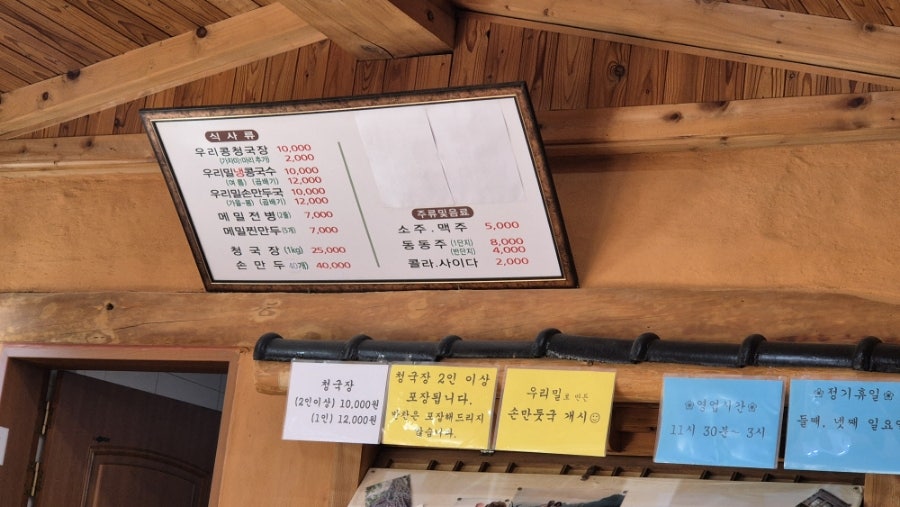 식사류
우리콩청국장 10,000
(가자미1마리추가) 2,000
우리밀냉콩국수 10,000
(여름) (곱배기) 12,000
우리밀손만두국 10,000
(가을~봄) (곱배기) 12,000
메밀전병(2줄) 7,000
메밀찐만두(5개) 7,000
청국장 (1kg) 25,000
손만두 40개) 40,000
주류및음료
소주.맥주 5,000
동동주 (1단지) 8,000
(반단지) 4,000
콜라.사이다 2,000
청국장
(2인이상) 10,000원
(1인) 12,000원
청국장 2인 이상
포장됩니다.
반찬은 포장해드리지
않습니다.
우리밀로 만든
손만둣국 개시
영업시간
11시 30분~3시
정기휴일
둘째, 넷째 일요